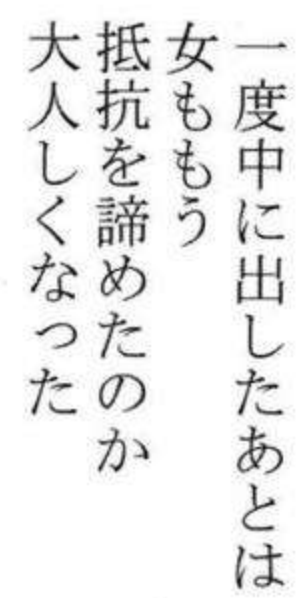 一度中に出したあとは
女ももう
抵抗を諦めたのか
大人しくなった